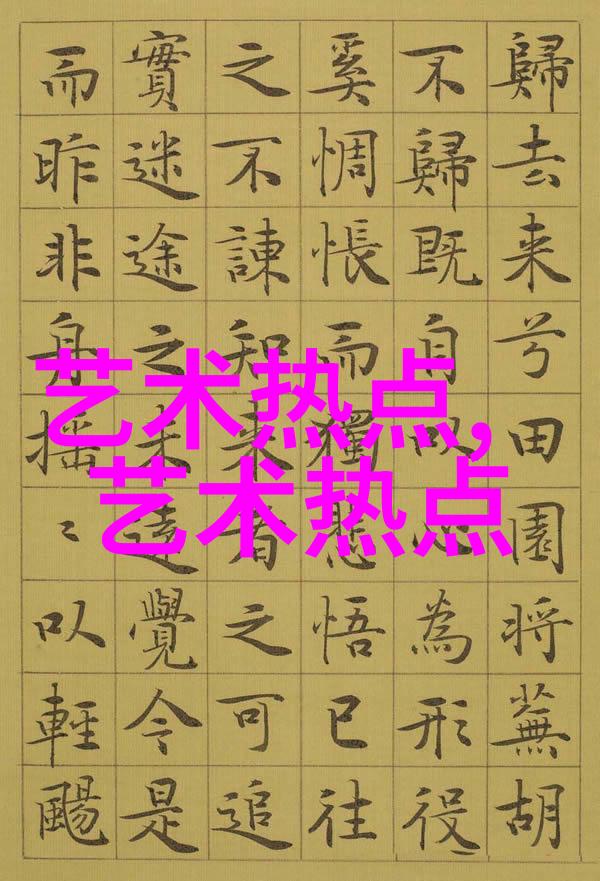 歸去来兮田園将蕪胡
不歸既自以心為形役
奚惆悵而獨悲悟已往
之不諫知来者之可追
實迷途之未遠覺今是
而昨非舟摇〻以輕颺
艺术热点,
艺术热点